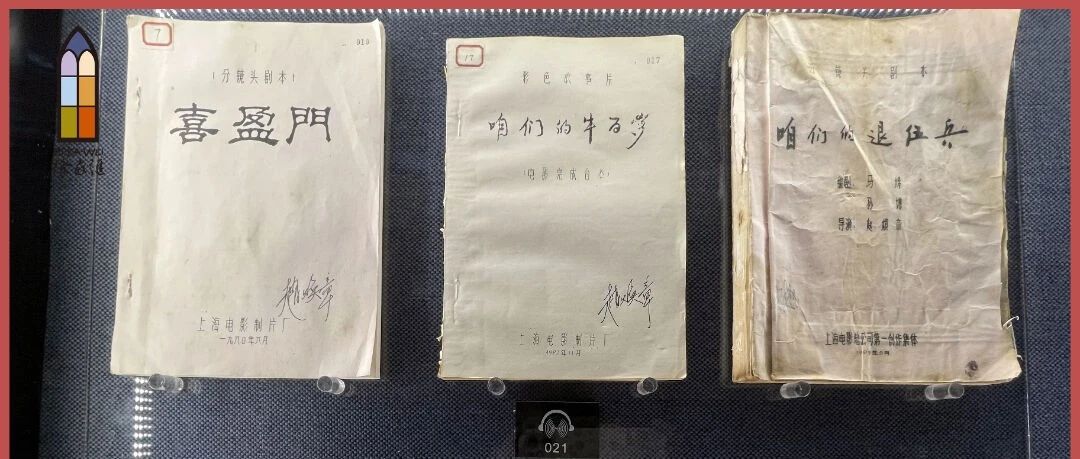 7
019
（分镜头剧本）
喜盈門
赵焕章
上海电影制片厂
一九八〇年八月
17
027
彩色故事片
咱们的牛百岁
（电影完成台本）
赵焕章
上海电影制片厂
镜头剧本
咱们的退伍兵
编剧：马烽
孙谦
导演：赵焕章
上海电影总公司第一创作集体
021